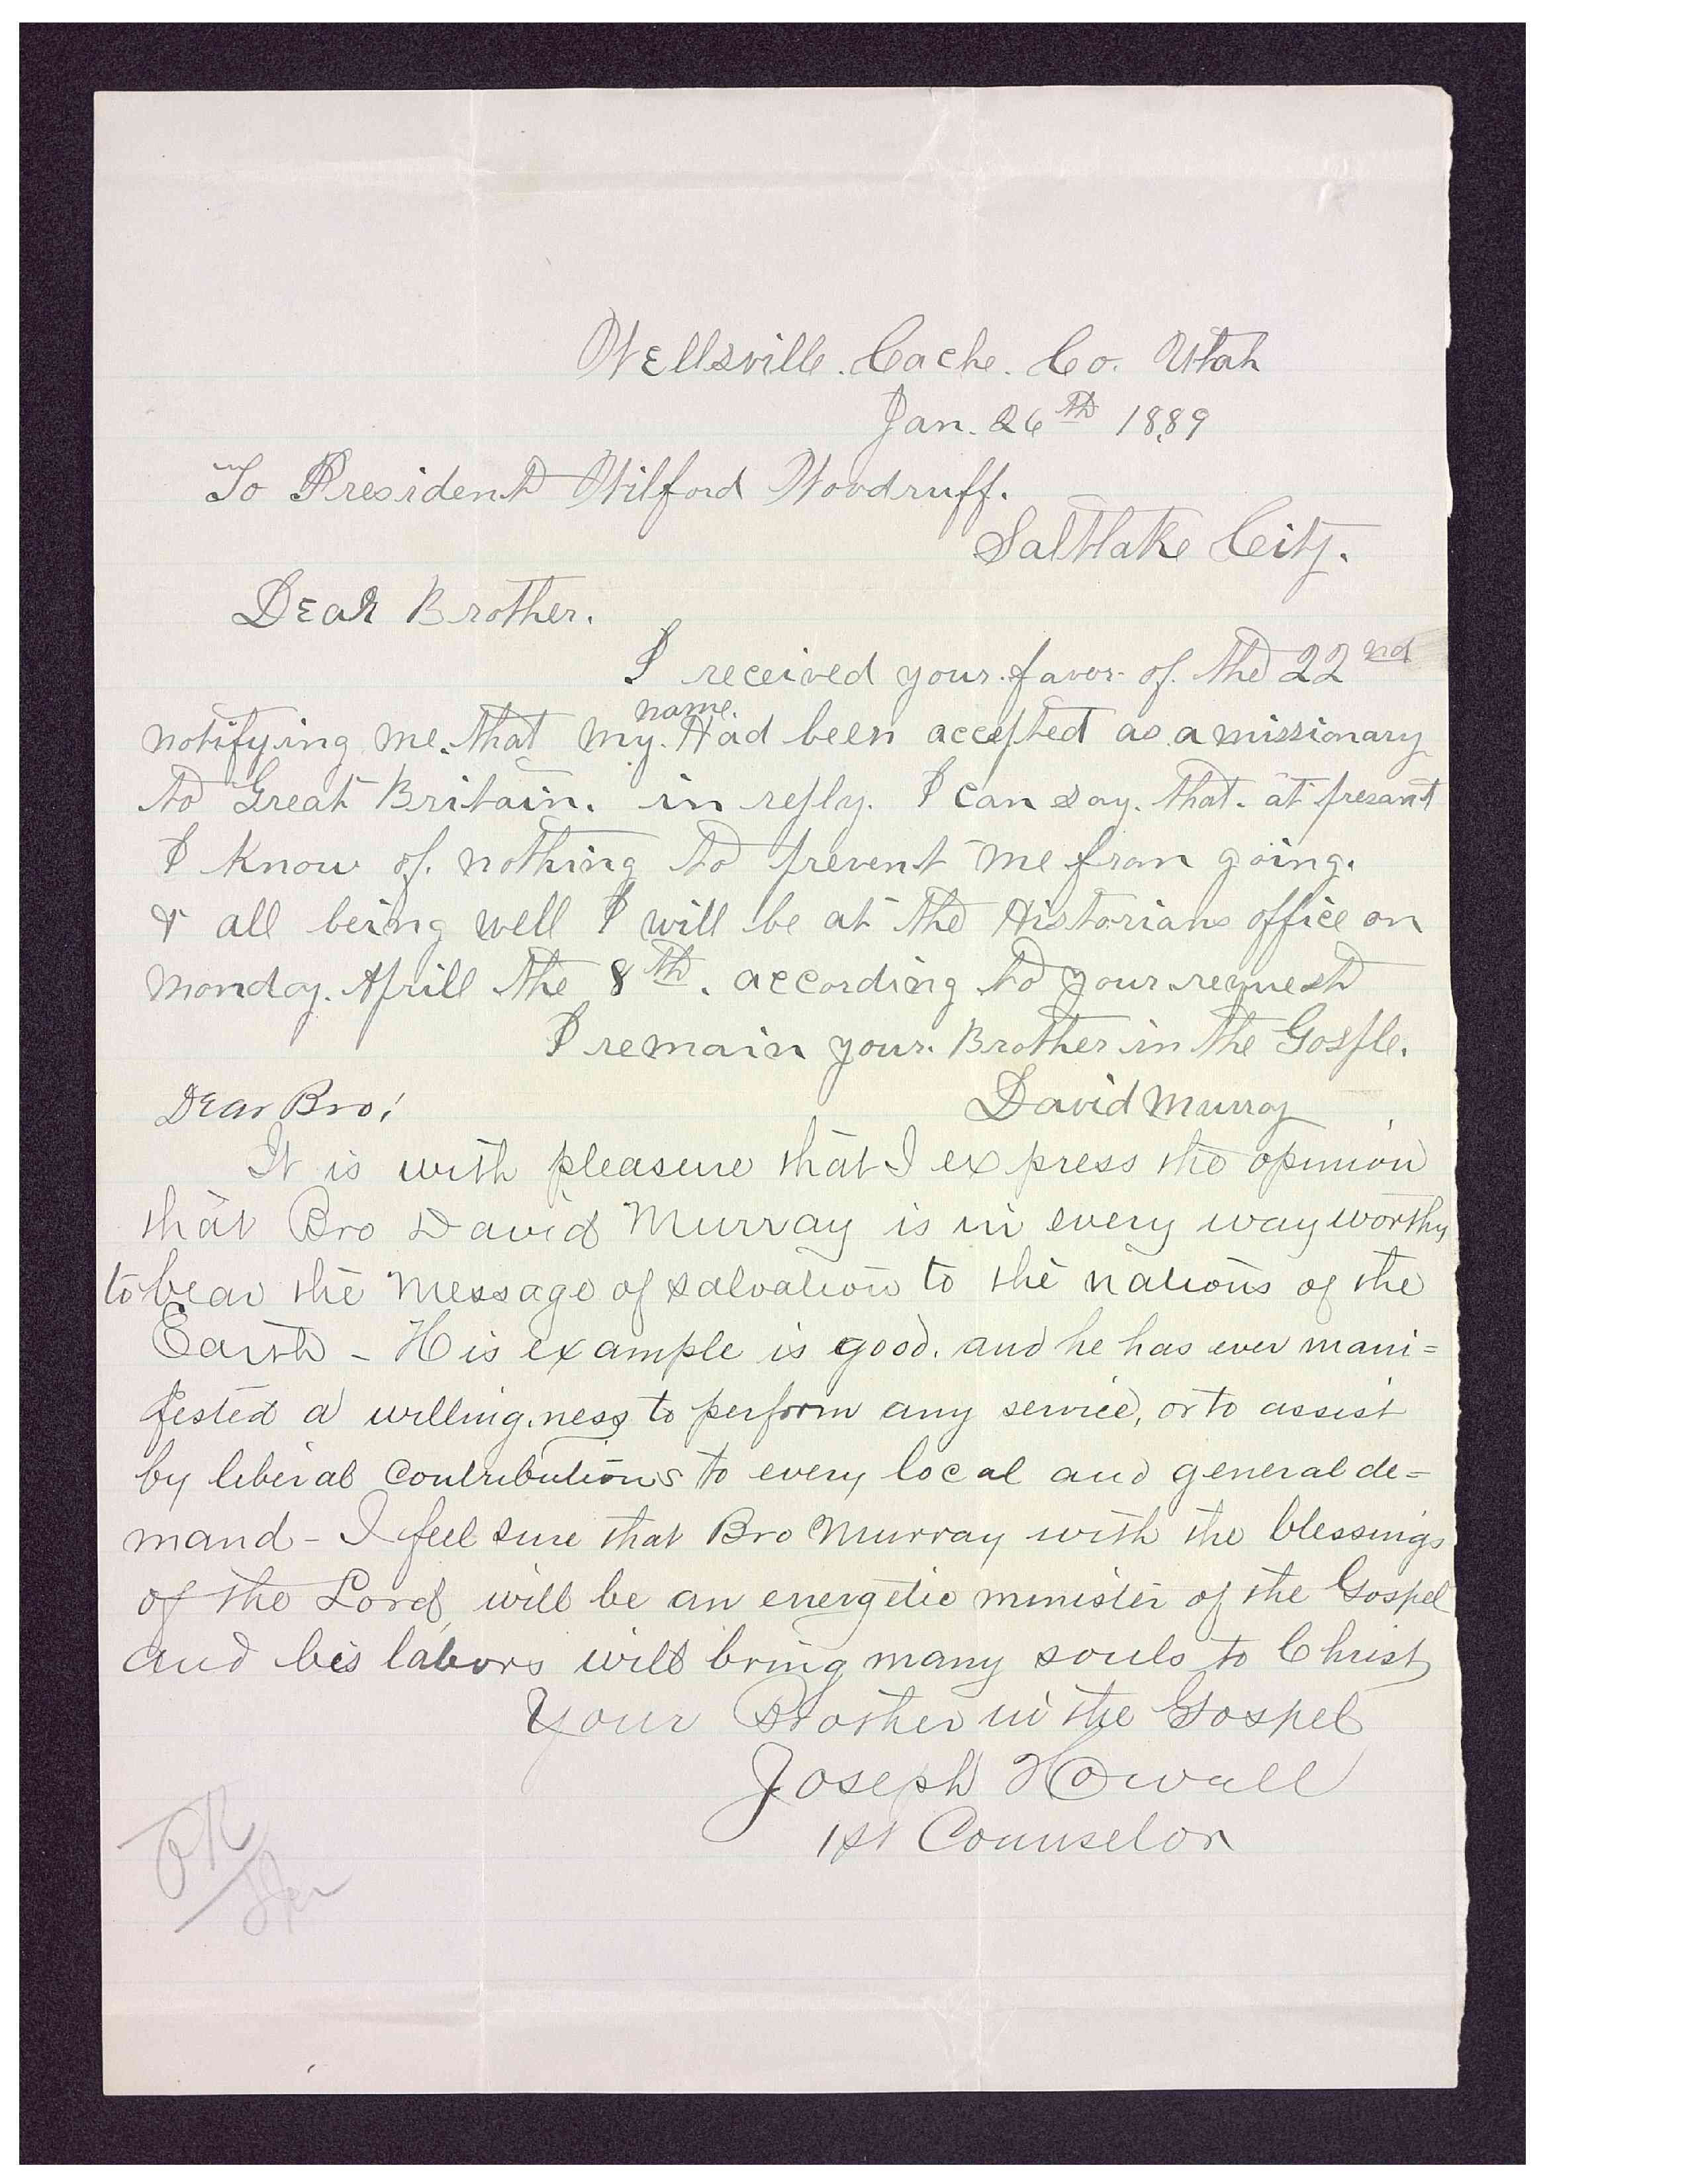 Wellsville. Cache. Co. Utah
Jan. 26th 1889
To President Wilford Woodruff.
Saltlake City.
Dear Brother.
I received your favor of the 22nd
name.
notifying me. that my. Had been accepted as a missionary
to Great Britain. in reply. I can say. that. at presant
I know of. nothing to prevent me from going.
& all being well I will be at the Historians office on
monday. Aprill the 8th. according to your request
I remain your. Brother in the Gosple.
David Murray
Dear Bro;
It is with pleasure that I express the opinion
that Bro David Murray is in every way worthy
to bear the message of salvation to the nations of the
Earth - His example is good. and he has ever mani=
fested a willingness to perform any service, or to assist
by liberal contributions to every local and general de=
mand - I feel sure that Bro Murray with the blessings
of the Lord, will be an energetic minister of the Gospel
and his labors will bring many souls to Christ
Your Brother in the Gospel
Joseph Howell
1st Counselor
OK